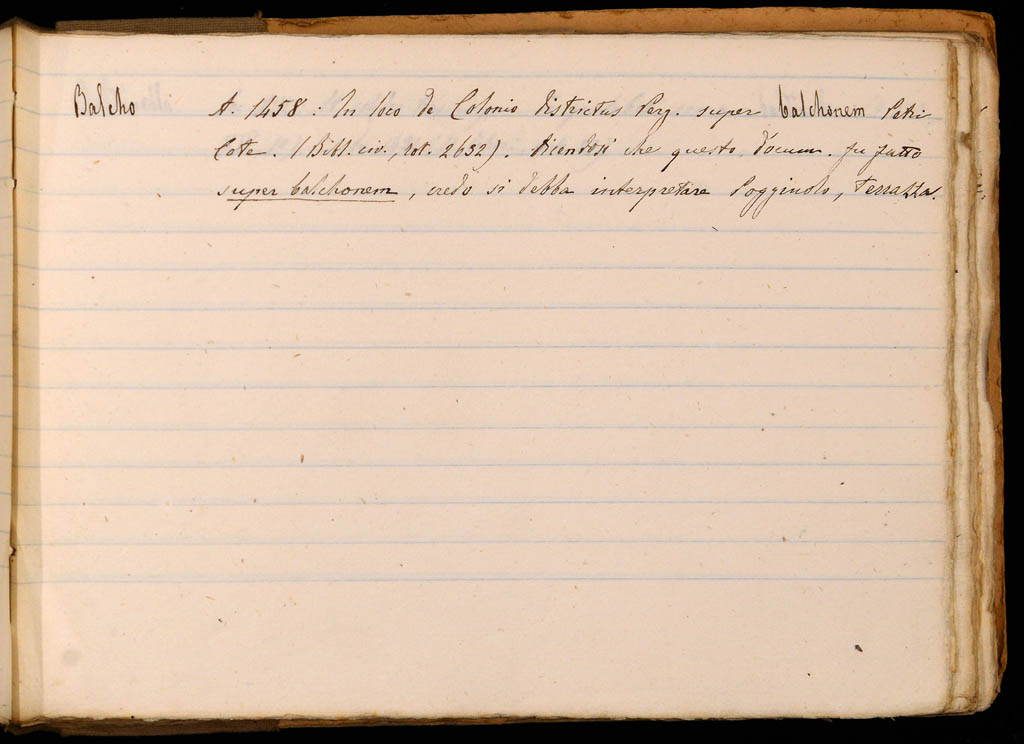 Balcho A. 1458: In loco de Colonio districtus Perg. super balchonem Petri
Cote. (Bibl. civ., rot. 2632). Dicendosi che questo docum. fu fatto
super balchonem, credo si debba interpretare Poggiuolo, Terrazza.